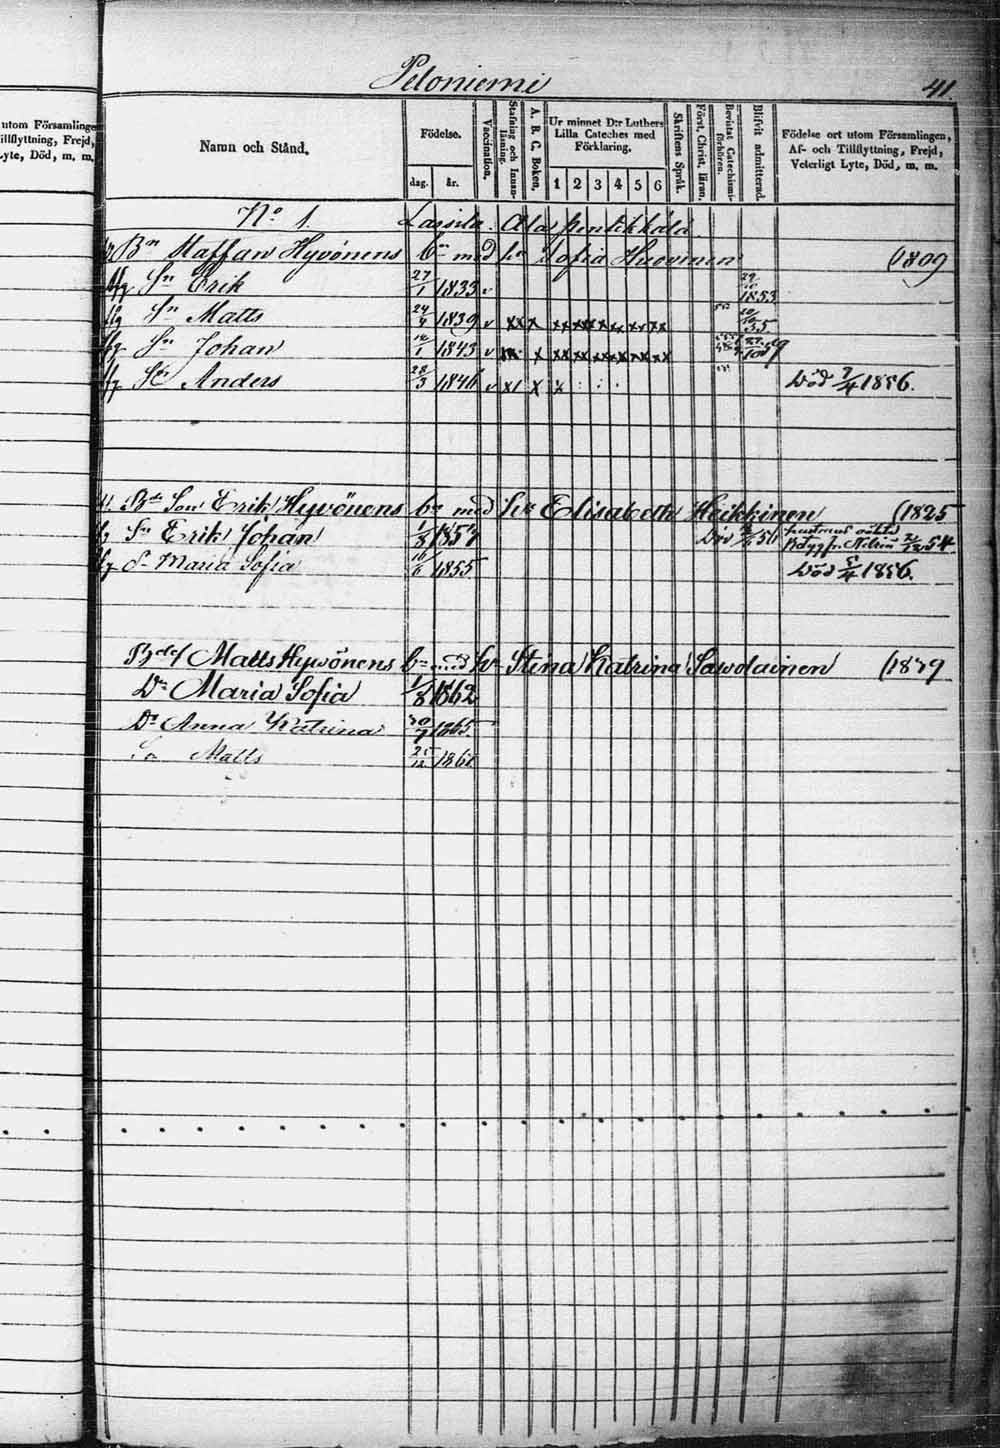 Peloniemi 41.
utom Församlinge
illflyttning, Frejd,
Lyte, Död, m. m.
Namn och Stånd.
Födelse.
dag. år.
Vaccination.
Stafning och Innanläsning.
A. B. C. Boken.
Ur minnet D:r Luthers
Lilla Cateches med
Förklaring.
1 2 3 4 5 6
Skriftens Språk.
Först. Christ. läran.
Bevistat Catechismiförhören.
Blifvit admitterad.
Födelse ort utom Församlingen,
Af- och Tillflyttning, Frejd,
Veterligt Lyte, Död, m. m.
No 1.
Bn Staffan Hyvönens bn med hu Sofia Huovinen (1809
Sn Erik 27/1 1833 v 1853
Sn Matts 24/4 1839 v xx x xx xx xx xx xx xx 55
Sn Johan 1843 v x xx xx xx xx xx xx
Sn Anders 28/3 1846 v x x x Död 7/4 1856.
Bde Son Erik Hyvönens bn med hu Elisabeth Heikkinen (1825
Sn Erik Johan 54
Dr Maria Sofia 1855 Död 5/4 1856.
Matts Hyvönens bn med hu Stina Katrina Sawolainen (1839
Dr Maria Sofia 1/8 1862
Dr Anna Katrina 30/7 1865
Sn Matts 25/12